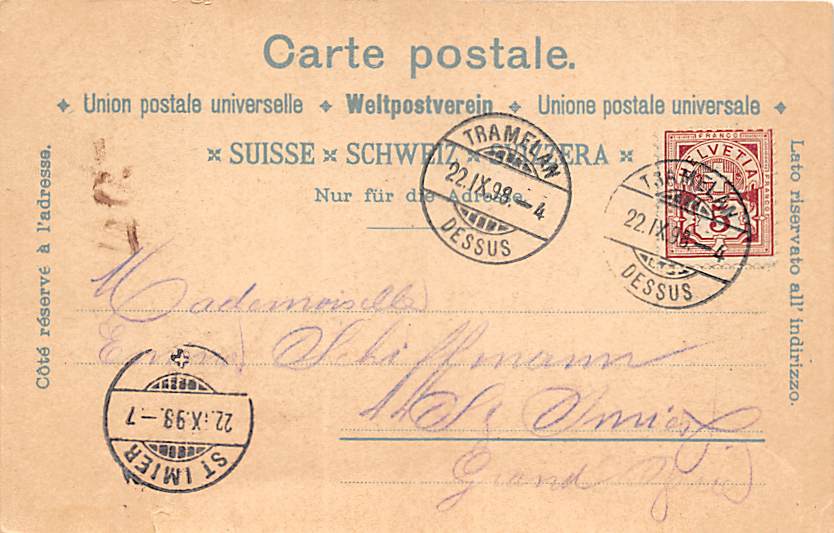 Carte postale.
✦ Union postale universelle ✦ Weltpostverein ✦ Unione postale universale ✦
SUISSE SCHWEIZ SVIZZERA
Nur für die Adresse.
Côté réservé à l'adresse.
Lato riservato all' indirizzo.
TRAMELAN
22.IX.98.–4
DESSUS
FRANCO
HELVETIA
5
TRAMELAN
22.IX.98.–4
DESSUS
Mademoiselle
Emma Schiffmann
St Imier
Grand
ST IMIER
22.IX.98.–7